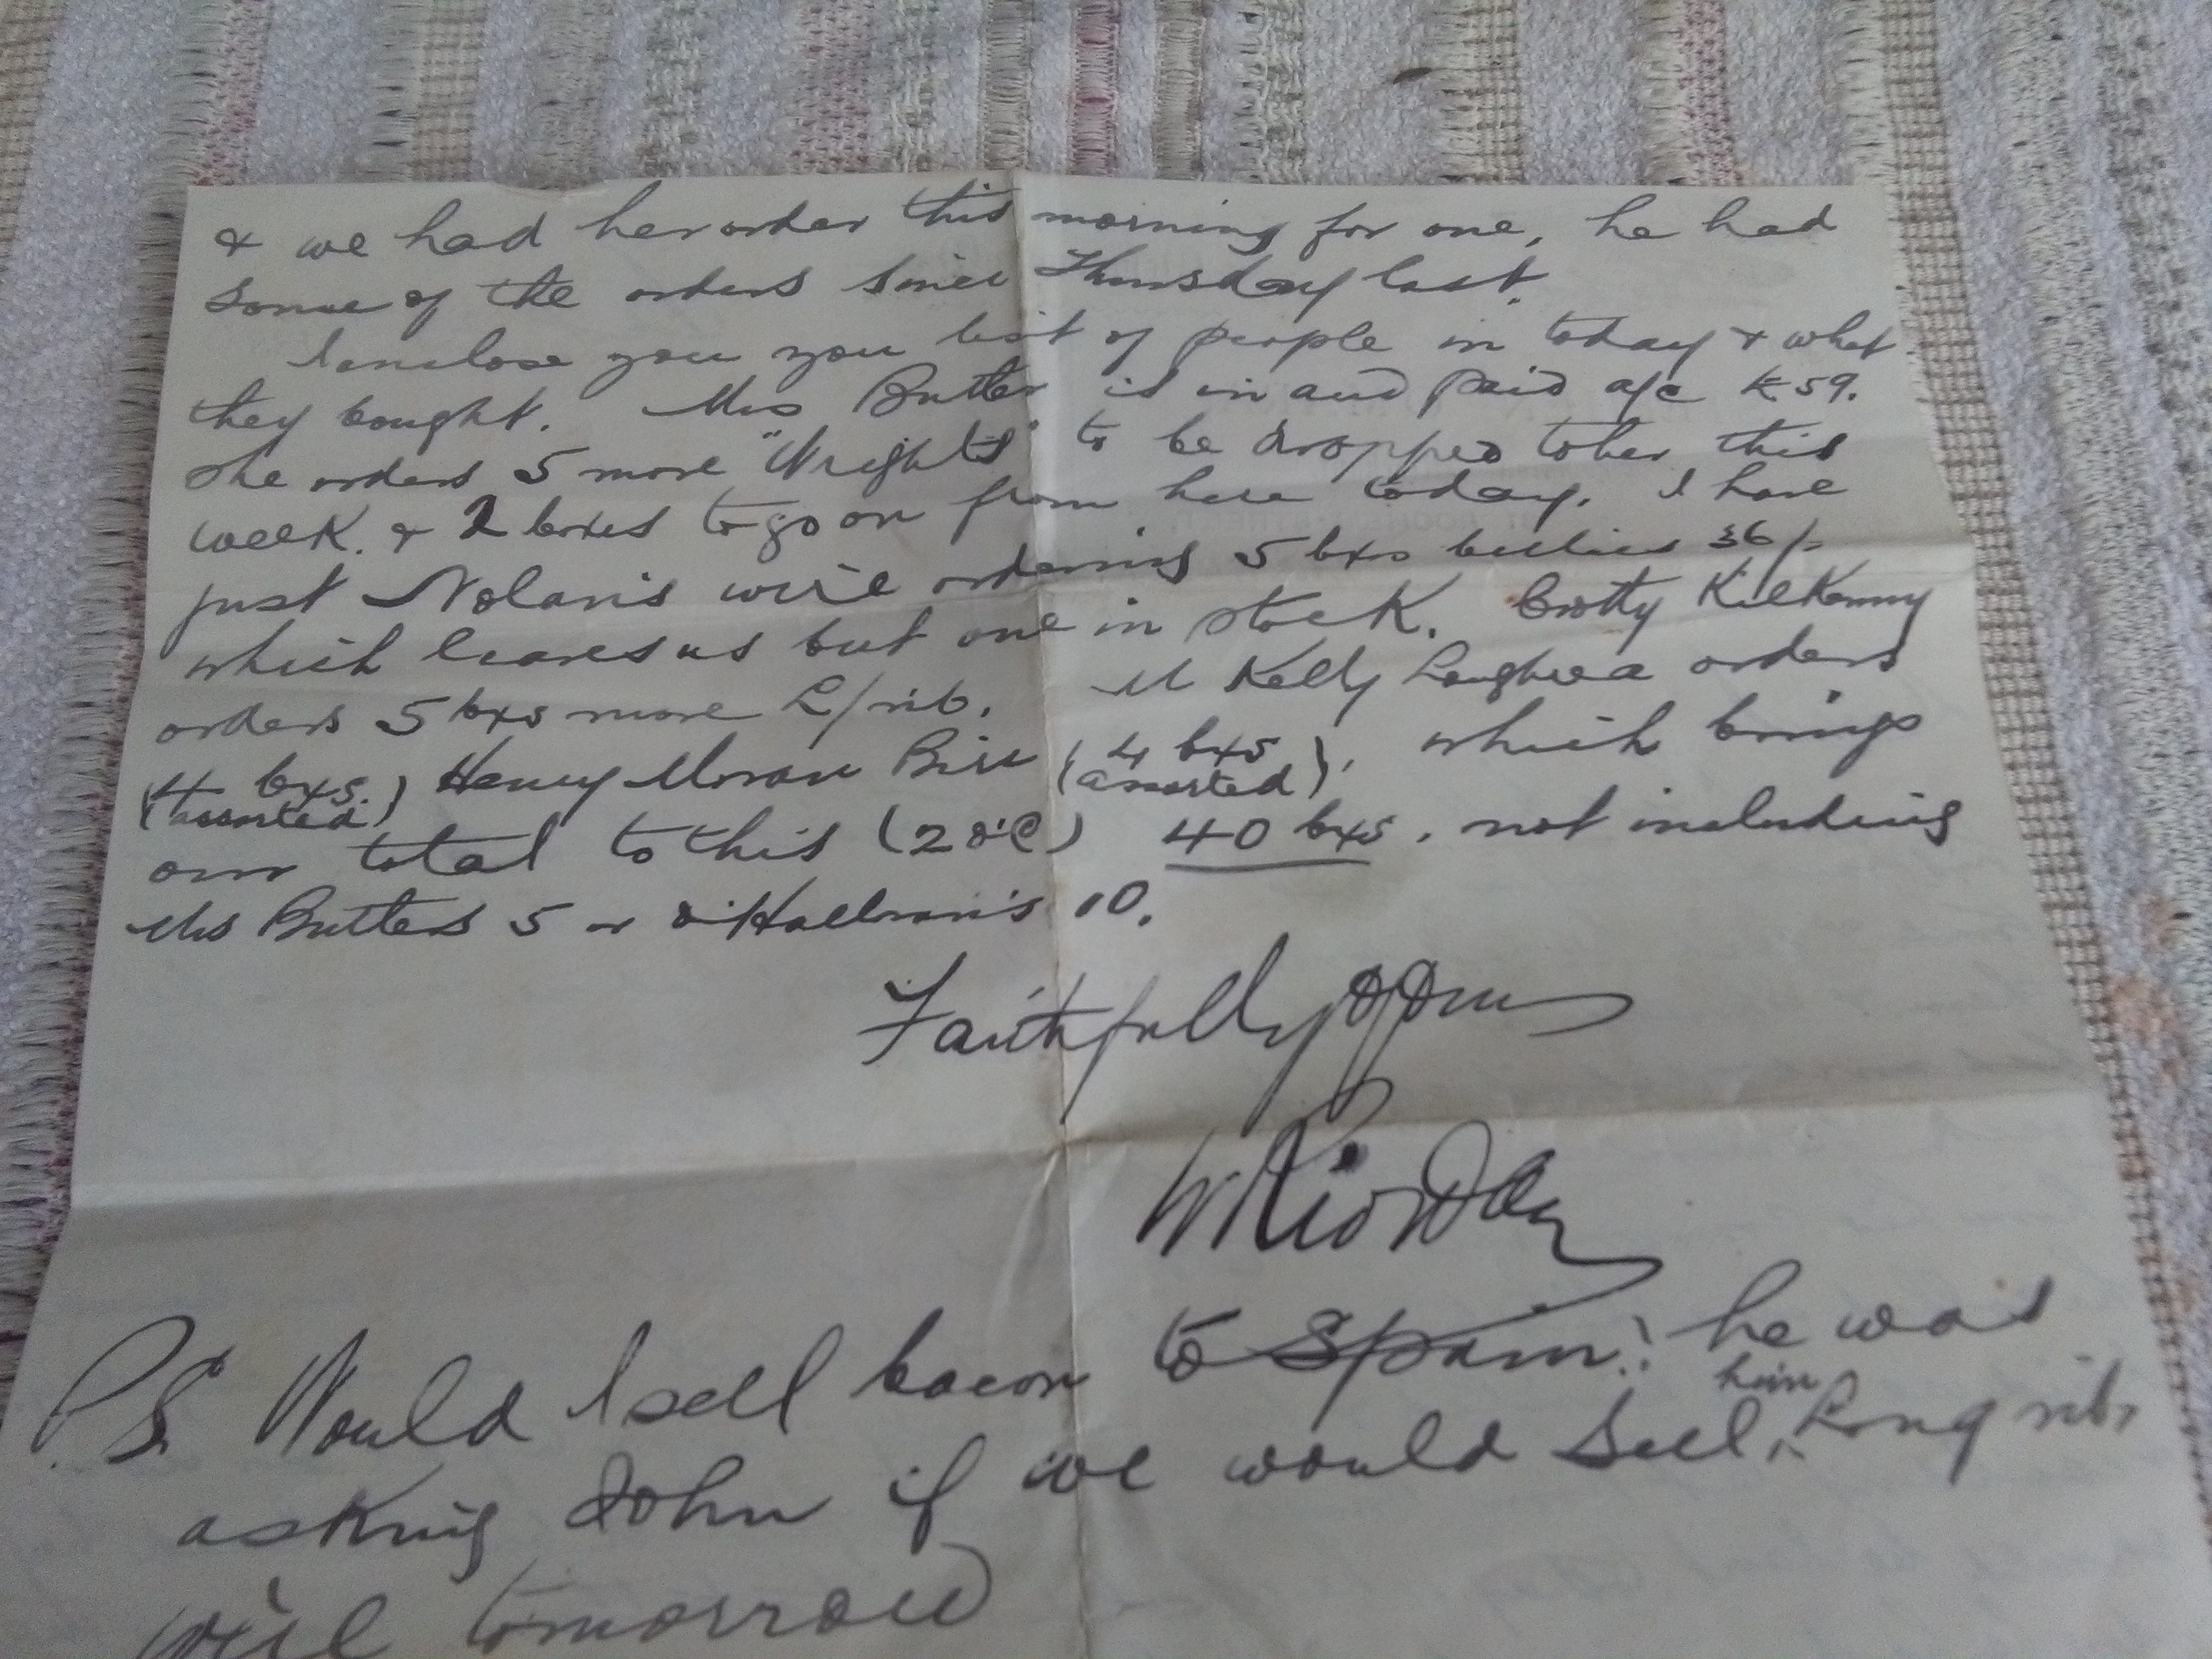 & we had her order this morning for one, he had
some of the orders since Thursday last.
I enclose you you list of people in today & what
they bought. Mrs Butler is in and paid a/c £59.
She orders 5 more "Wrights" to be dropped to her this
week. & 2 boxes to go on from here today. I have
just Nolan's wire ordering 5 bxs bellies 36/-
which leaves us but one in stock. Crotty Kilkenny
orders 5 bxs more L/rib. M Kelly Loughrea orders
4 bxs. (assorted) Henry Moran Birr 4 bxs (assorted), which brings
our total to this (2 o'c) 40 bxs, not including
Mrs Butlers 5 or O'Halloran's 10.
Faithfully yours
W Riordan
P.S. Would I sell bacon to Spain? he was
asking John if we would sell him Long rib,
will tomorrow